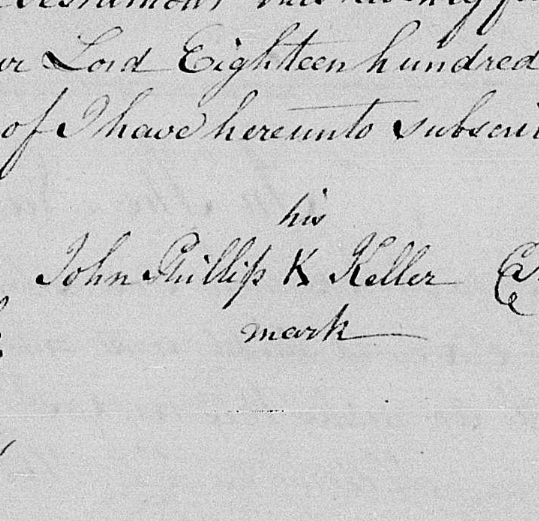 Lord Eighteen hundred
of I have hereunto
his
John Phillip K Keller
mark